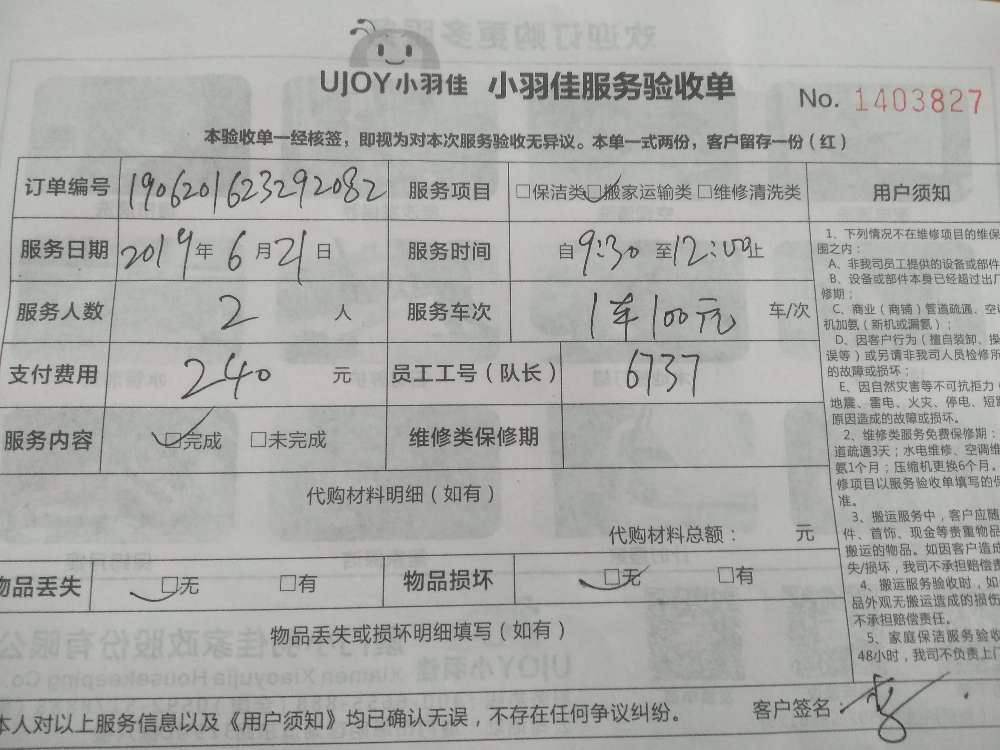 UJOY小羽佳 小羽佳服务验收单 No. 1403827
本验收单一经核签，即视为对本次服务验收无异议。本单一式两份，客户留存一份（红）
订单编号 1906201623292082 服务项目 □保洁类 □搬家运输类 □维修清洗类
服务日期 2019年6月21日 服务时间 自9:30至12:00止
服务人数 2人 服务车次 1车100元 车/次
支付费用 240元 员工工号（队长） 6737
服务内容 □完成 □未完成 维修类保修期
代购材料明细（如有）
代购材料总额： 元
物品丢失 □无 □有 物品损坏 □无 □有
物品丢失或损坏明细填写（如有）
本人对以上服务信息以及《用户须知》均已确认无误，不存在任何争议纠纷。 客户签名
用户须知
1、下列情况不在维修项目的维保
围之内：
A、非我司员工提供的设备或部件
B、设备或部件本身已经超过出厂
修期；
C、商业（商铺）管道疏通、空
机加氨（新机或漏氨）；
D、因客户行为（擅自装卸、操
误等）或另请非我司人员检修所
的故障或损坏；
E、因自然灾害等不可抗拒力（
地震、雷电、火灾、停电、短
原因造成的故障或损坏。
2、维修类服务免费保修期：
道疏通3天；水电维修、空调维
氨1个月；压缩机更换6个月。
修项目以服务验收单填写的保
准。
3、搬运服务中，客户应随
件、首饰、现金等贵重物品
搬运的物品。如因客户造成
失/损坏，我司不承担赔偿责
4、搬运服务验收时，如
品外观无搬运造成的损伤
不承担赔偿责任。
5、家庭保洁服务验收
48小时，我司不负责上门